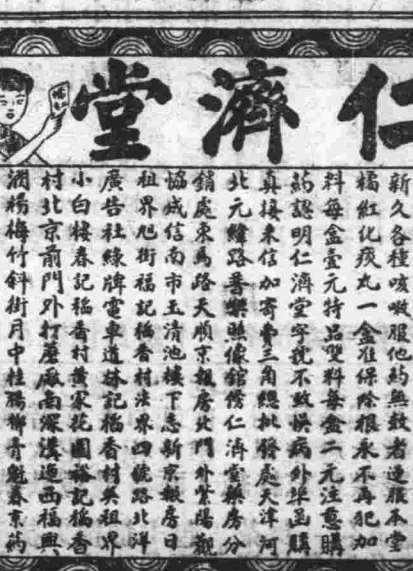 仁濟堂
新久各種咳嗽服他藥無效者速服本堂
橘紅化痰丸一盒准保除根永不再犯加
料每盒壹元特品雙料每盒二元注意購
藥認明仁濟堂字號不致悞病外埠函購
真接來信加寄費三角總批發處天津河
北元緯路善樂照像舘傍仁濟堂藥房分
銷處東馬路天順京報房北門外紫陽觀
協成信南市玉清池樓下志新京報房日
租界旭街福記稻香村法界四號路北洋
廣告社綠牌電車道林記稻香村英租界
小白樓春記稻香村黃家花園裕記稻香
村北京前門外打磨廠南深溝迤西福興
潤楊梅竹斜街月中桂賜鄉青魁春京藥